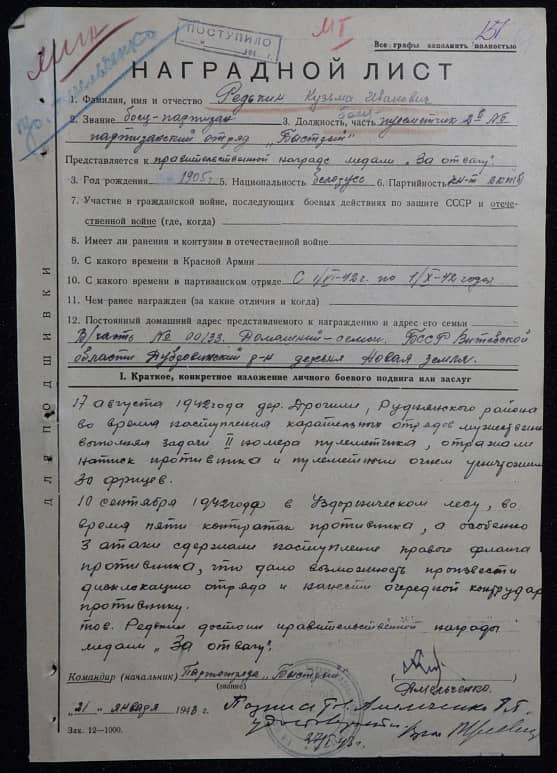 ПОСТУПИЛО
МГ
151
Все графы заполнить полностью
НАГРАДНОЙ ЛИСТ
1. Фамилия, имя и отчество Редькин Кузьма Иванович
2. Звание боец-партизан 3. Должность, часть пулеметчик
партизанский отряд „Быстрый"
Представляется к правительственной награде медали „За отвагу".
3. Год рождения 1905г. 5. Национальность белорусс 6. Партийность
7. Участие в гражданской войне, последующих боевых действиях по защите СССР и отече-
ственной войне (где, когда)
8. Имеет ли ранения и контузии в отечественной войне
9. С какого времени в Красной Армии
10. С какого времени в партизанском отряде С 1/VI-42г. по 1/X-42 года
11. Чем ранее награжден (за какие отличия и когда)
12. Постоянный домашний адрес представляемого к награждению и адрес его семьи
В/часть № 00133. Домашний-семьи. БССР Витебской
области р-н деревня Новая Земля.
I. Краткое, конкретное изложение личного боевого подвига или заслуг
17 августа 1942 года дер. Дрогили, Руднянского района
во время наступления карательных отрядов мужественно
выполняя задачи II номера пулеметчика, отражали
натиск противника и пулеметным огнем уничтожили
30 фрицев.
10 сентября 1942 года в лесу, во
время пяти контратак противника, а особенно
3 атаки сдержали наступление правого фланга
противника, что дало возможность произвести
дислокацию отряда и нанести очередной контрудар
противнику.
тов. Редькин достоин правительственной награды
медали „За отвагу".
Командир (начальник) Партотряда „Быстрый"
(звание)
Амельченко.
„21" января 1943 г.
удостоверяю
Зак. 12—1000.
ДЛЯ ПОДШИВКИ